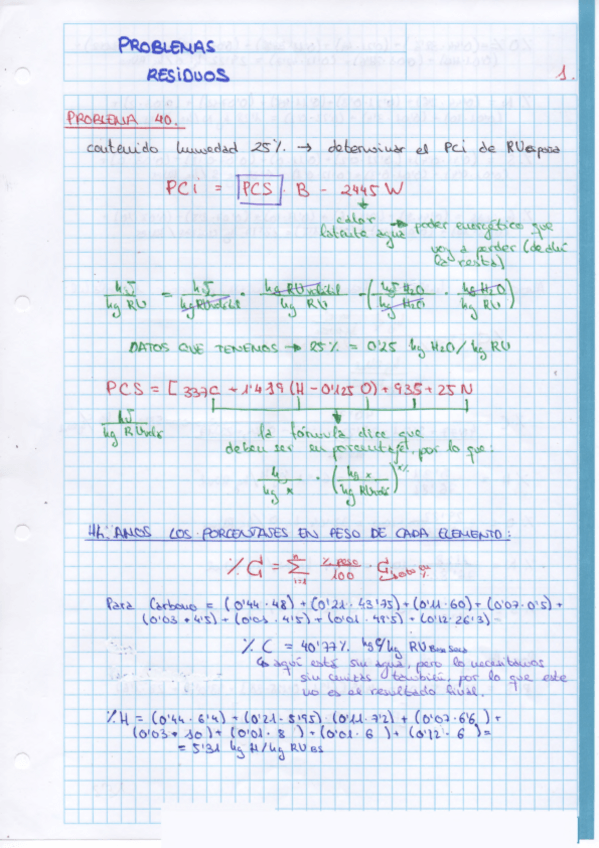 PROBLEMAS
RESIDUOS
1.
PROBLEMA 40.
contenido humedad 25% → determinar el PCi de RU
PCi = PCS · B - 2445 W
calor
latente agua → poder energético que
voy a perder (de ahí
la resta)
kJ/kg RU = kJ/kg RU · kg RU/kg RU - (kJ H2O/kg H2O · kg H2O/kg RU)
DATOS QUE TENEMOS → 25% = 0'25 kg H2O/kg RU
PCS = [337C + 1'419 (H - 0'125 O) + 93S + 25N
kJ/kg RU
la fórmula dice que
deben ser en porcentaje, por lo que:
PORCENTAJES EN PESO DE CADA ELEMENTO:
% Ci = Σ % peso/100 · Ci
Para Carbono = (0'44 · 48) + (0'21 · 43'75) + (0'11 · 60) + (0'07 · 0'5) +
(0'03 · 4'5) + (0'01 · 4'5) + (0'01 · 48'5) + (0'12 · 26'3)
% C = 40'77% kg C/kg RU
aquí está sin agua, pero lo necesitamos
sin cenizas también, por lo que este
no es el resultado final.
% H = (0'44 · 6'4) + (0'21 · 5'95) · (0'11 · 7'2) + (0'07 · 6'6) +
(0'03 · 10) + (0'01 · 8) + (0'01 · 6) + (0'12 · 6) =
= 5'31 kg H/kg RU BS